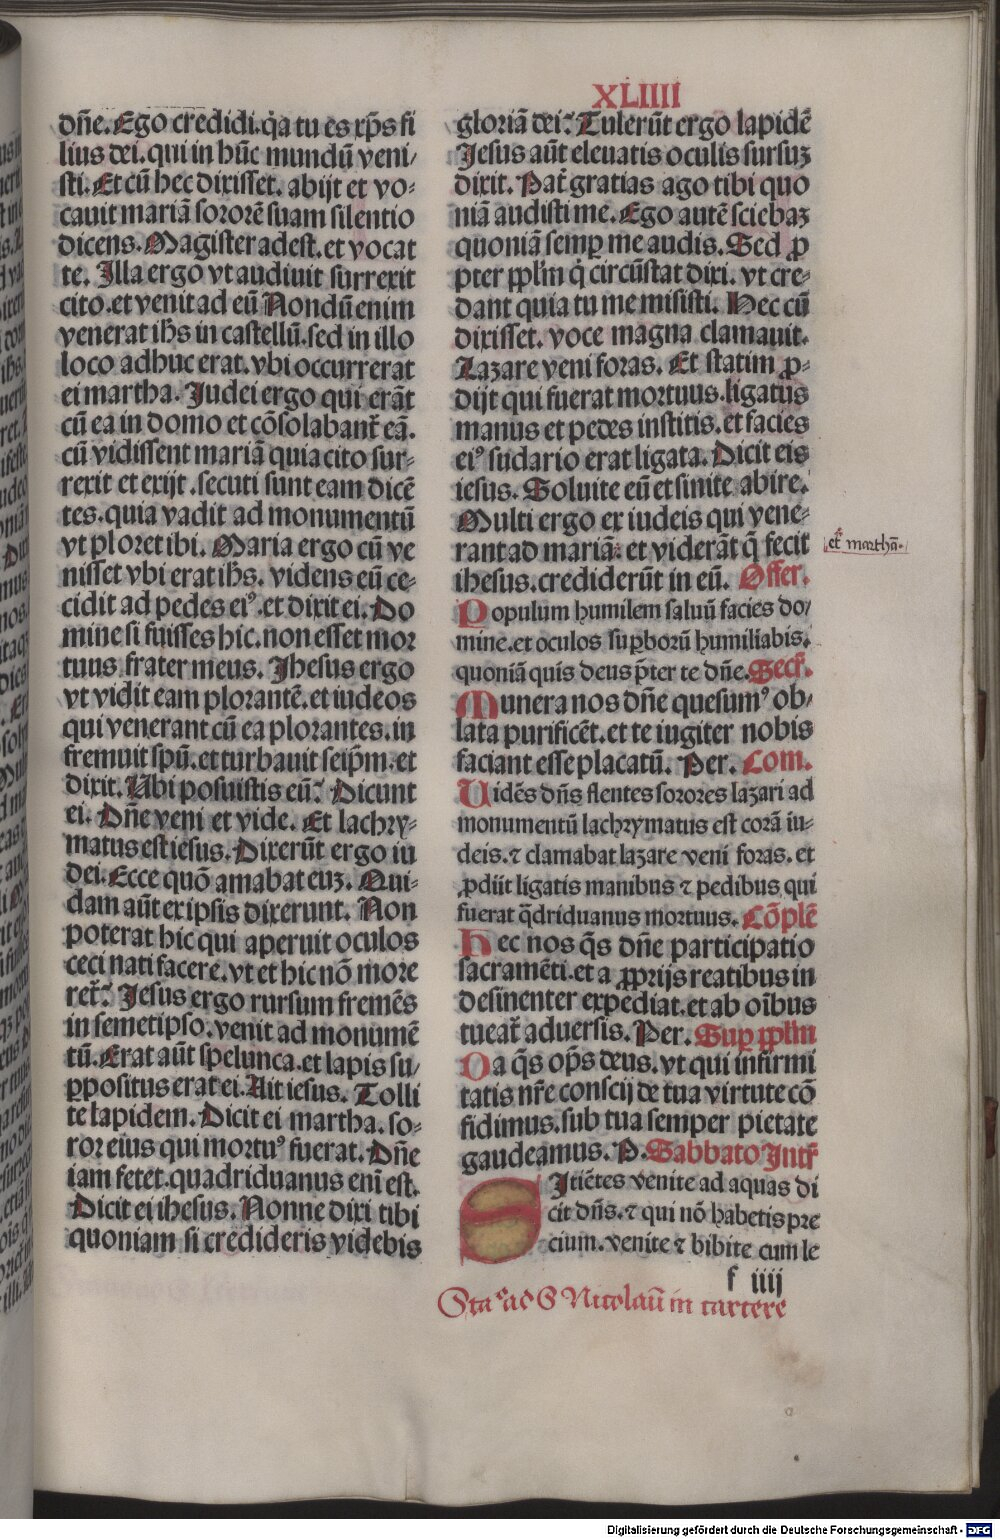 XLIIII
dñe. Ego credidi. q̇a tu es xp̄s fi
lius dei. qui in hūc mundū veni-
sti. Et cū hec dixisset. abijt et vo-
cauit mariā sororē suam silentio
dicens. Magister adest. et vocat
te. Illa ergo vt audiuit surrexit
cito. et venit ad eū Nondū enim
venerat ih̄s in castellū. sed in illo
loco adhuc erat. vbi occurrerat
ei martha. Judei ergo qui erāt
cū ea in domo et cōsolabant̄ eā.
cū vidissent mariā quia cito sur-
rexit et exijt. secuti sunt eam dicē
tes. quia vadit ad monumentū
vt ploret ibi. Maria ergo cū ve
nisset vbi erat ih̄s. videns eū ce-
cidit ad pedes eiꝰ. et dixit ei. Do
mine si fuisses hic. non esset mor
tuus frater meus. Jhesus ergo
vt vidit eam plorantē. et iudeos
qui venerant cū ea plorantes. in
fremuit spū. et turbauit seip̄m. et
dixit. Ubi posuistis eū? Dicunt
ei. Dñe veni et vide. Et lachry-
matus est iesus. Dixerūt ergo iu
dei. Ecce quō amabat euꝫ. Qui-
dam aūt ex ipsis dixerunt. Non
poterat hic qui aperuit oculos
ceci nati facere. vt et hic nō more
ret̄? Jesus ergo rursum fremēs
in semetipso. venit ad monumē
tū. Erat aūt spelunca. et lapis su-
ꝑpositus erat ei. Ait iesus. Tolli
te lapidem. Dicit ei martha. so-
ror eius qui mortuꝰ fuerat. Dñe
iam fetet. quadriduanus enī est.
Dicit ei ihesus. Nonne dixi tibi
quoniam si credideris videbis
gloriā dei? Tulerūt ergo lapidē
Jesus aūt eleuatis oculis sursuꝫ
dixit. Pat̄ gratias ago tibi quo
niā audisti me. Ego autē sciebaꝫ
quoniā semꝑ me audis. Sed ꝓ
pter pplm̄ q̇ circūstat dixi. vt cre-
dant quia tu me misisti. Hec cū
dixisset. voce magna clamauit.
Lazare veni foras. Et statim ꝓ-
dijt qui fuerat mortuus. ligatus
manus et pedes institis. et facies
eiꝰ sudario erat ligata. Dicit eis
iesus. Soluite eū et sinite abire.
Multi ergo ex iudeis qui vene-
rant ad mariā. et viderāt q̄ fecit
et marthā.
ihesus. crediderūt in eū. Offer.
Populum humilem saluū facies do/
mine. et oculos suꝑborū humiliabis.
quoniā quis deus p̄ter te dñe. Secr̄.
Munera nos dñe quesumꝰ ob/
lata purificēt. et te iugiter nobis
faciant esse placatū. Per. Com.
Uidēs dñs flentes sorores lazari ad
monumentū lachrymatus est corā iu-
deis. ⁊ clamabat lazare veni foras. et
ꝓdiit ligatis manibus ⁊ pedibus qui
fuerat q̄driduanus mortuus. Cōplē
Hec nos q̄s dñe participatio
sacramēti. et a ꝓprijs reatibus in
desinenter expediat. et ab oībus
tueat̄ aduersis. Per. Suꝑ pplm̄
Da q̄s op̄s deus. vt qui infirmi
tatis nr̄e conscij de tua virtute cō
fidimus. sub tua semper pietate
gaudeamus. P. Sabbato Intr̄
SItiētes venite ad aquas di
cit dñs. ⁊ qui nō habetis pre
cium. venite ⁊ bibite cum le
f iiij
Sta° ad S Nicolaū in carcere
Digitalisierung gefördert durch die Deutsche Forschungsgemeinschaft - DFG